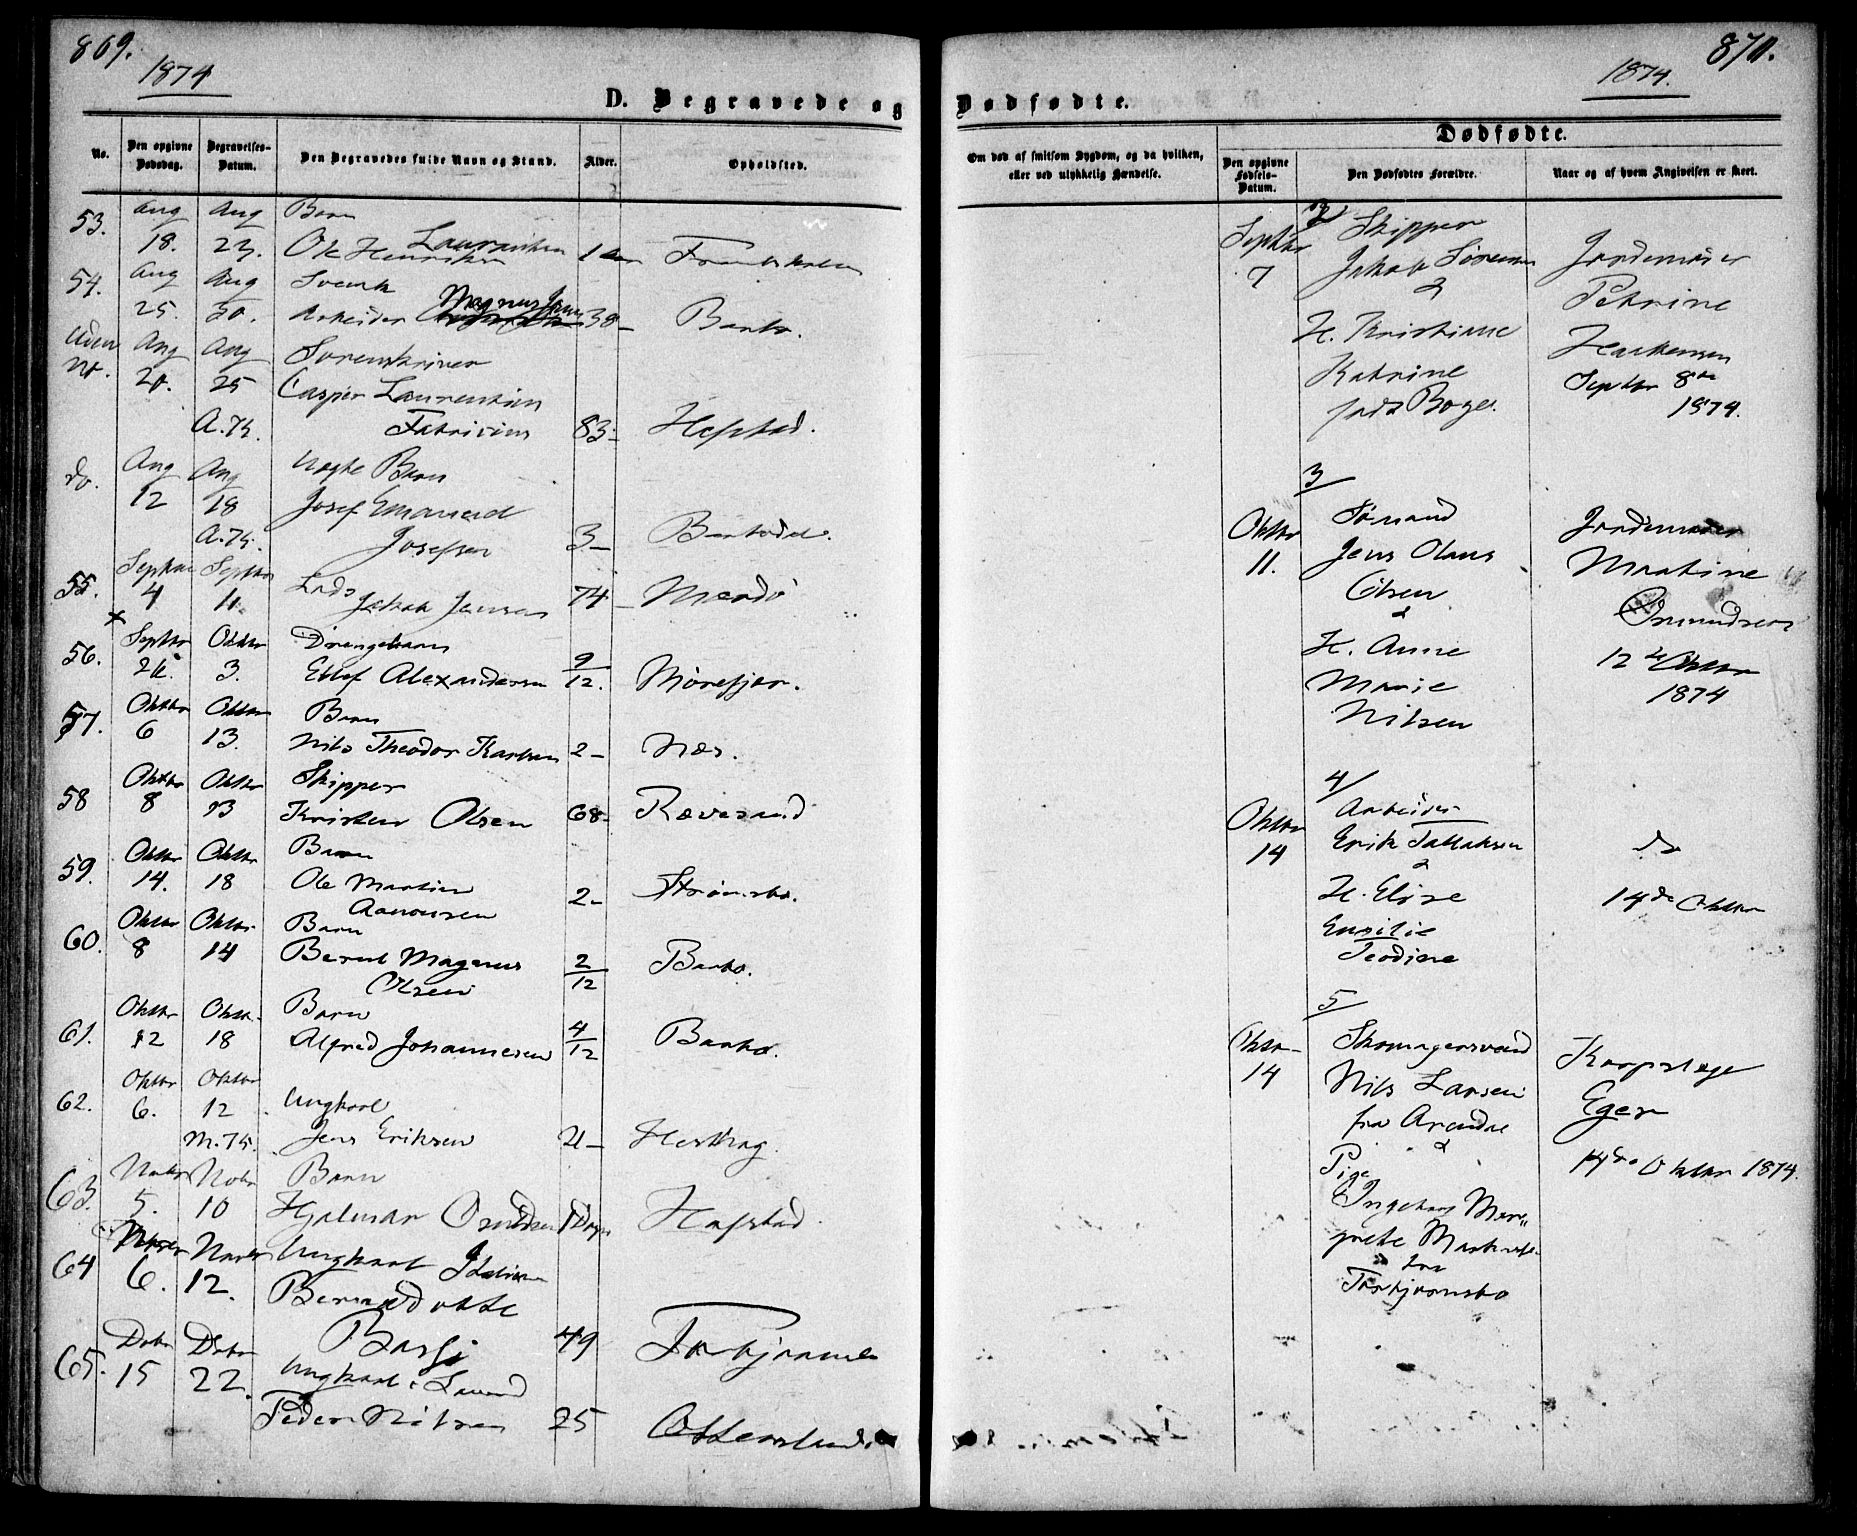 869.
1874
D. Begravede og
No.
Den opgivne Dødsdag.
Begravelses-Datum.
Den Begravedes fulde Navn og Stand.
Alder.
Opholdsted.
53. Aug 18. Aug 23. Barn
Ole Henriksen Lauransen 1
54. Aug 25. Aug 30. Svensk
Arbeider Magnus 38 - Barbo.
Uden No. Aug 20. Aug 25 Sorenskriver
Casper Laurentius
A.74. Fabricius 83- Hefstad.
do. Aug 12 Aug 18 Uægte Barn
Josef Emanuel
A.74. Josefsen 3-
55. Septbr 4 Septbr 11. Lods
Jakob Jensen 74 - Mærdø
x
56. Septbr 26. Oktbr 3. Drengebarn
Ellef Alexandersen 9/12. Mørefjær.
57. Oktbr 6 Oktbr 13. Barn
Nils Theodor Karlsen 2- Næs.
58 Oktbr 8 Oktbr 13 Skipper
Kristen Olsen 68- Rævesand
59. Oktbr 14. Oktbr 18 Barn
Ole Martin
Aanonsen 2- Strømsbo.
60. Oktbr 8 Oktbr 14 Barn
Bernt Magnus
Olsen 2/12 Barbo.
61. Oktbr 12 Oktbr 18 Barn
Alfred Johannesen 4/12 Barbo.
62. Oktbr 6. Oktbr 12 Ungkarl
M.74. Jens Eriksen 21-
63. Novbr 5. Novbr 10 Barn
Hjalmar Dage Hefstad.
64 Novbr 6. Novbr 12. Ungkarl
Bernadotte
49
65. Debr 15 Debr 22. Ungkarl
Peder Nilsen 25
870.
1874.
Dødfødte.
Om død af smitsom Sygdom, og da hvilken, eller ved ulykkelig Hændelse.
Dødfødte.
Den opgivne Fødsels-Datum.
Den Dødfødtes Forældre.
Naar og af hvem Angivelsen er skeet.
2/
Septbr 7 Skipper
Jakob Sørensen
&
H. Kristiane
Katrine
født Boye.
Jordemoder
Petrine
Haakensen
Septbr 8de
1874.
3/
Oktbr 11. Sømand
Jens Olaus
Olsen
&
H. Anne
Marie
Nilsen
Jordemoder
Martine
12te Oktbr
1874
4/
Oktbr 14 Arbeider
Erik Tallaksen
&
H. Elise
Emilie
Teodine
do
14de Oktbr
5/
Oktbr 14 Skomagersvend
Nils Larsen
fra Arendal
&
Pige
Ingeborg Mar-
grete
fra
Torbjørnsbo
Korpslæge
Eger
14de Oktbr 1874.